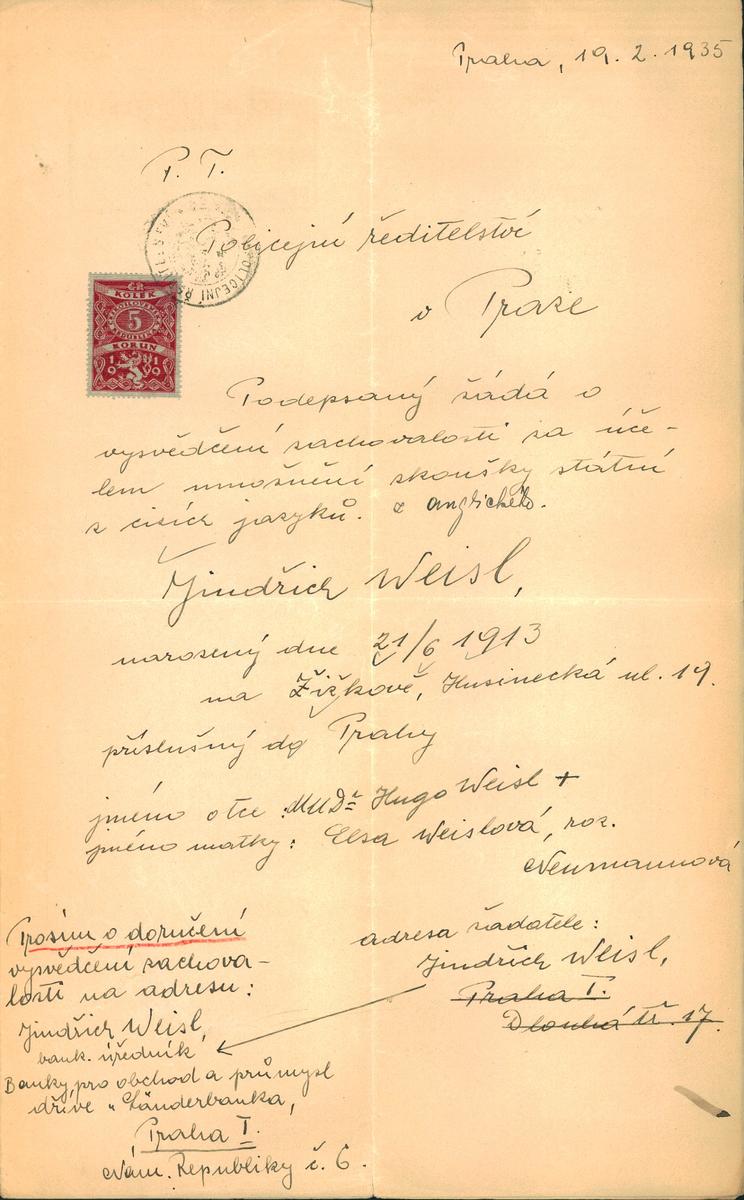 Praha, 19. 2. 1935
P. T.
Policejní ředitelství
v Praze
POLICEJNÍ
KOLEK
5
KORUN
1919
Podepsaný žádá o
vysvědčení zachovalosti za úče-
lem umožnění zkoušky státní
z cizích jazyků. z anglického.
Jindřich Weisl,
narozený dne 21/6 1913
na Žižkově, Husinecká ul. 19.
příslušný do Prahy
jméno otce: MUDr Hugo Weisl +
jméno matky: Elsa Weislová, roz.
Neumannová
adresa žadatele:
Jindřich Weisl,
Praha I.
Dlouhá tř. 17.
Prosím o doručení
vysvědčení zachova-
losti na adresu:
Jindřich Weisl,
bank. úředník
Banky pro obchod a průmysl
dříve „Länderbanka,
Praha I.
Nám. Republiky č. 6.